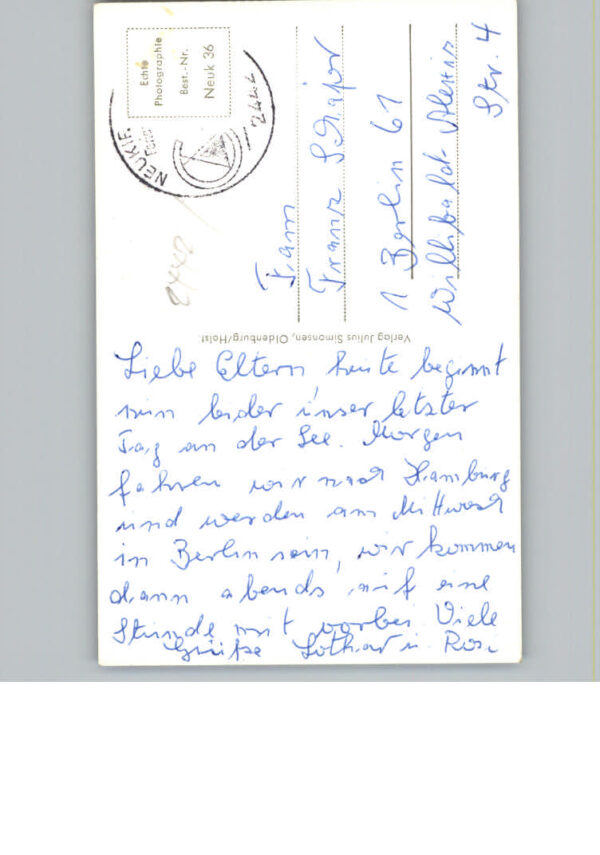 Liebe Eltern, heute beginnt
nun leider unser letzter
Tag an der See. Morgen
fahren wir nach Hamburg
und werden am Mittwoch
in Berlin sein, wir kommen
dann abends auf eine
Stunde mit vorbei Viele
Grüße Lothar u. Rosi
Verlag Julius Simonsen, Oldenburg/Holst.
Echte
Photographie
Best.-Nr.
Neuk 36
NEUKI
Fam
Franz
1 Berlin 61
Willibald-Alexis
Str. 4